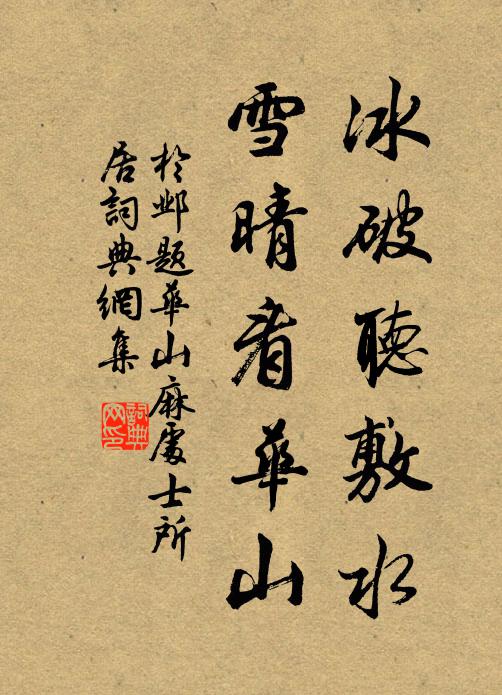 冰破聽敷水
雪晴看華山
於鄴題華山麻處士所
居詞典網集
詞典
网印